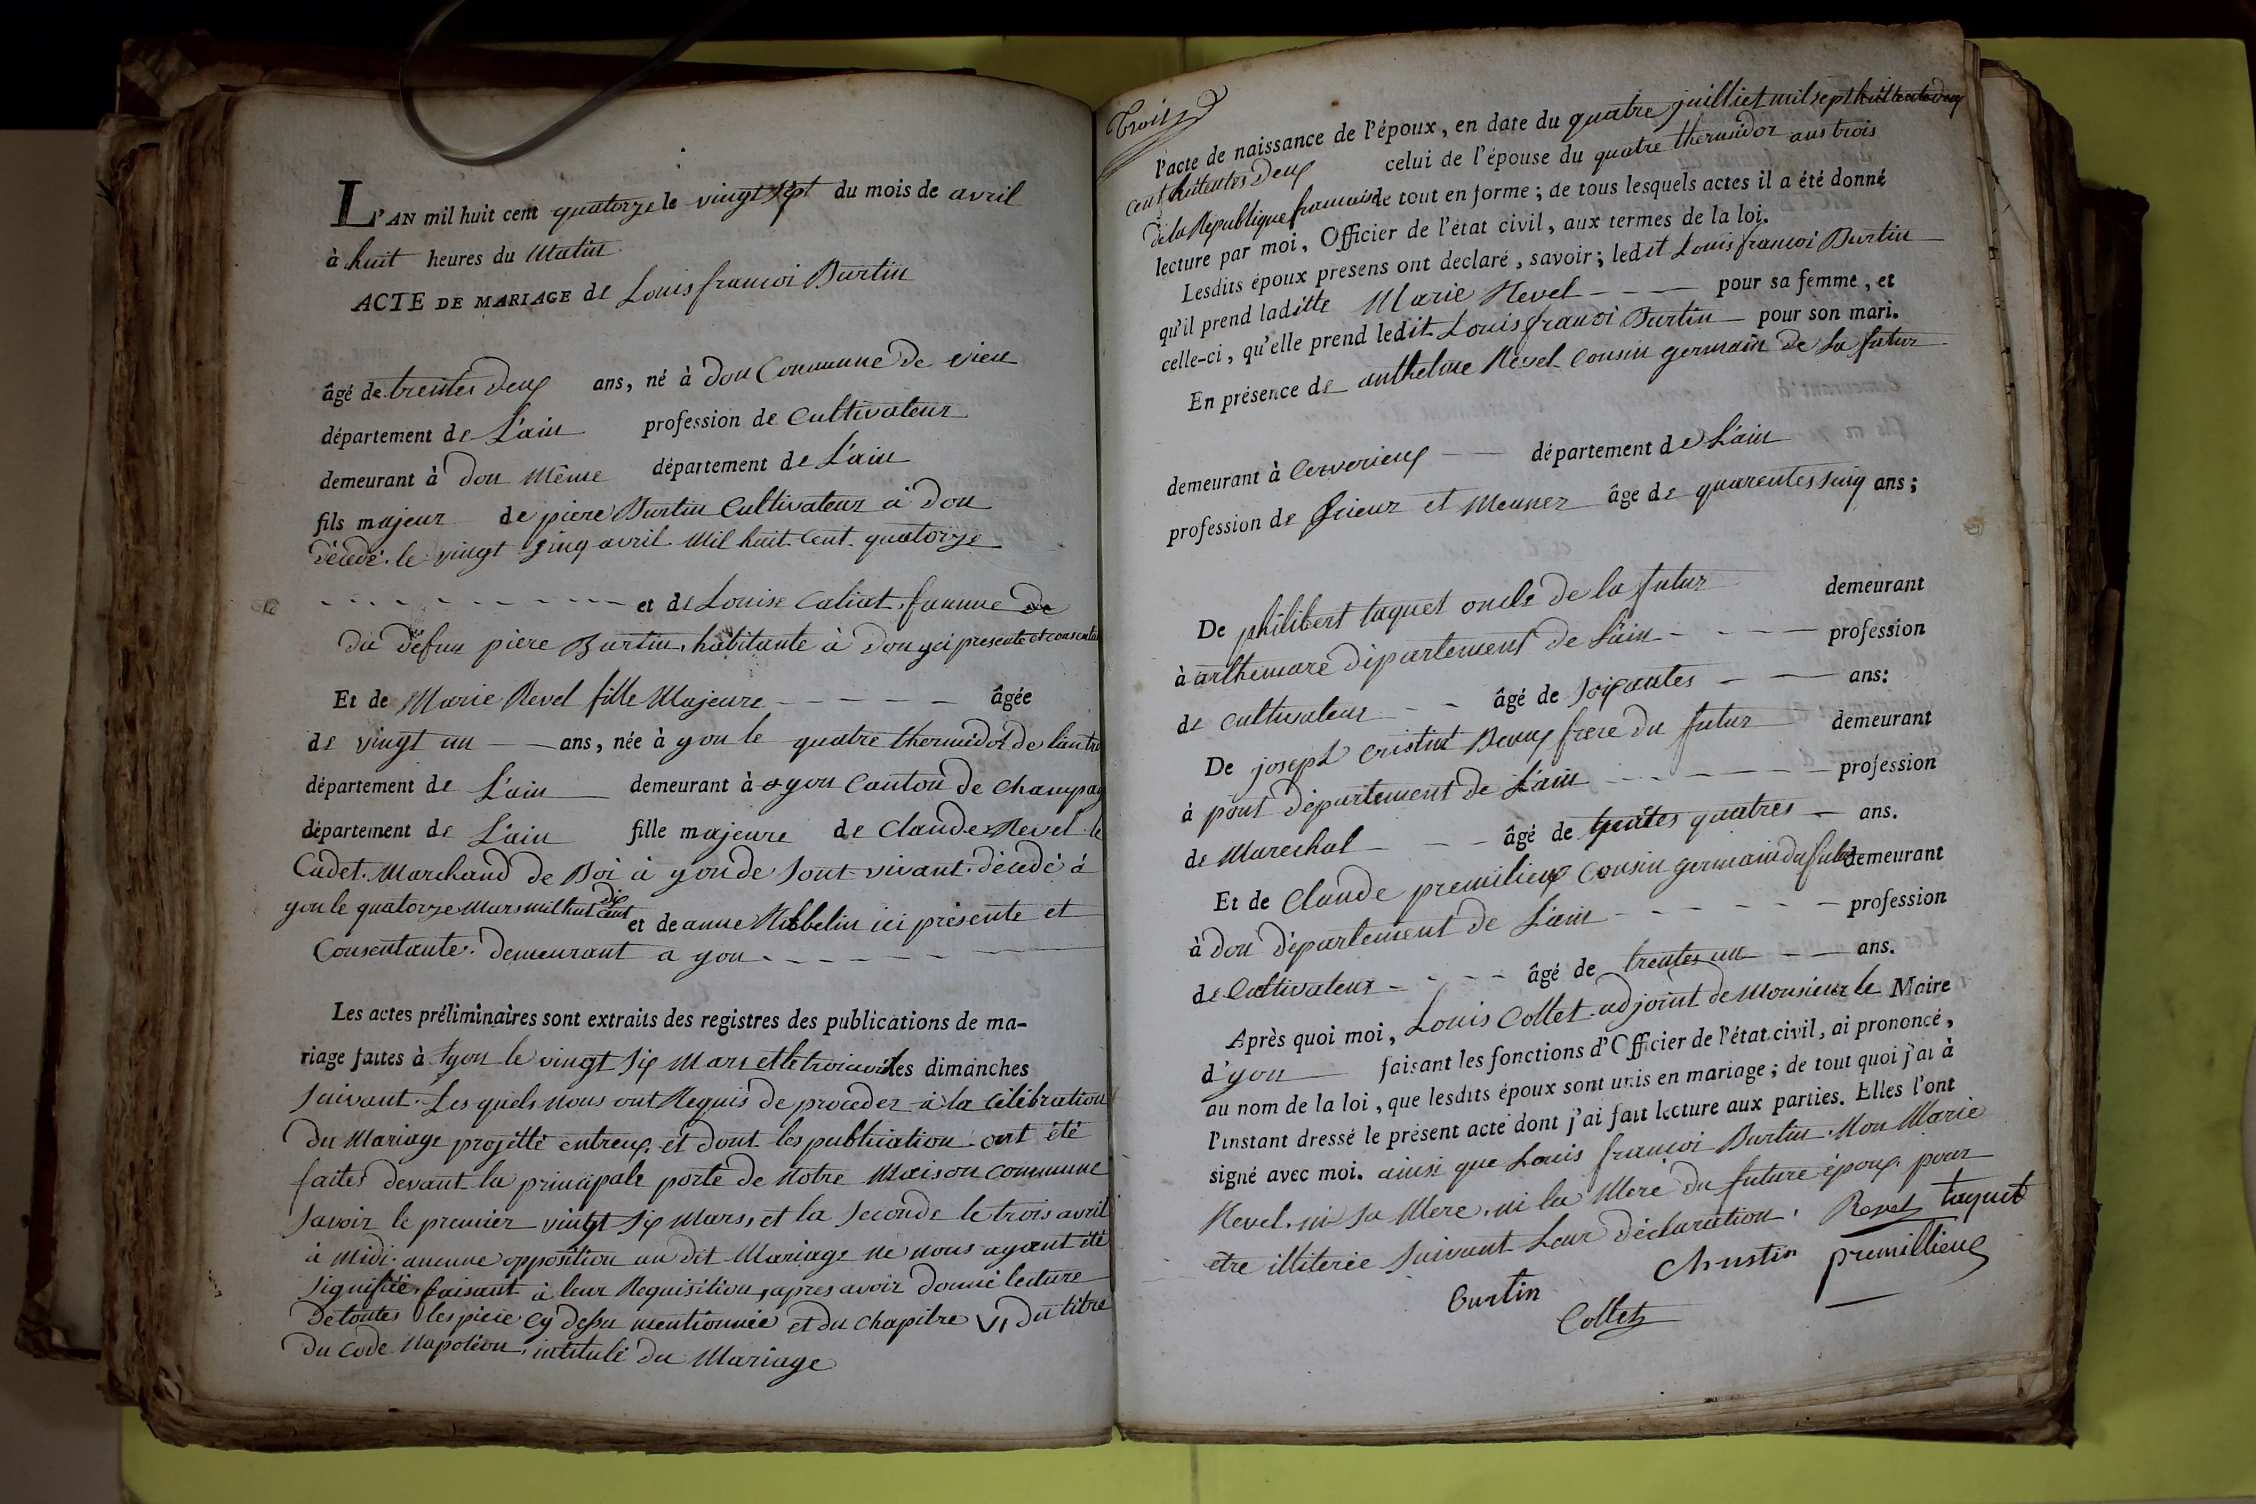 L'AN mil huit cent quatorze le vingt sept du mois de avril
à huit heures du Matin
ACTE DE MARIAGE de Louis francoi Burtin
âgé de trentes deux ans, né à don Commune de vieu
département de L'ain profession de Cultivateur
demeurant à don Même département de L'ain
fils majeur de piere Burtin Cultivateur à don
décédé le vingt sinq avril Mil huit Cent quatorze
et de Louise Caliat, famme de
du défun piere Burtin, habitante à Don yci presente et consentante
Et de Marie Revel fille Majeure âgée
de vingt un ans, née à yon le quatre thermidor de l'an tr
département de L'ain demeurant à yon Canton de Champag
département de L'ain fille majeure de Claude Revel le
Cadet. Marchand de Boi à yon de sont vivant. décédé à
yon le quatorze Mars mil huit cent dix et de anne Ribbelin ici présente et
Consentante. demeurant a yon
Les actes préliminaires sont extraits des registres des publications de ma-
riage faites à yon le vingt six Mars et le troi avril les dimanches
suivant. Les quels nous ont Requis de proceder à la célébration
du Mariage projetté entreux, et dont les publication ont été
faites devant la principale porte de Notre Maison commune
savoir le premier vingt six Mars, et la seconde le trois avril
à midi. aucune opposition au dit Mariage ne nous ayant été
signifiée, faisant à leur Requisition, apres avoir donné lecture
de toutes les piece cy dessu mentionnée et du chapitre VI du titre
du Code Napoléon, intitulé du Mariage
Trois
l'acte de naissance de l'époux, en date du quatre juilliet mil sept huitentedeux
cent huitentes deux celui de l'épouse du quatre thermidor ans trois
de la République francaise de tout en forme; de tous lesquels actes il a été donné
lecture par moi, Officier de l'état civil, aux termes de la loi.
Lesdits époux présens ont déclaré, savoir; ledit Louis francoi Burtin
qu'il prend laditte Marie Revel pour sa femme, et
celle-ci, qu'elle prend ledit Louis francoi Burtin pour son mari.
En présence de anthelme Revel Cousin germain de La futur
demeurant à Cerverieux département de L'ain
profession de Scieur et Meunez âgé de quarentes sinq ans;
De philibert taquet oncle de la futur demeurant
à arthemare département de L'ain profession
de Cultivateur âgé de soixantes ans:
De joseph Cristin Beaux frere du futur demeurant
à pont département de L'ain profession
de Marechal âgé de trentes quatres ans.
Et de Claude premilieux Cousin germain du futur demeurant
à don département de L'ain profession
de Cultivateur âgé de trentes un ans.
Après quoi moi, Louis Collet adjoint de Monsieur le Maire
d'yon faisant les fonctions d'Officier de l'état civil, ai prononcé,
au nom de la loi, que lesdits époux sont unis en mariage; de tout quoi j'ai à
l'instant dressé le présent acte dont j'ai fait lecture aux parties. Elles l'ont
signé avec moi. ainsi que Louis francoi Burtin. Non Marie
Revel. ni sa Mere. ni la Mere du future époux. pour
etre illiterée suivant Leur déclaration. Revel taquet
Burtin Christin premillieux
Collet